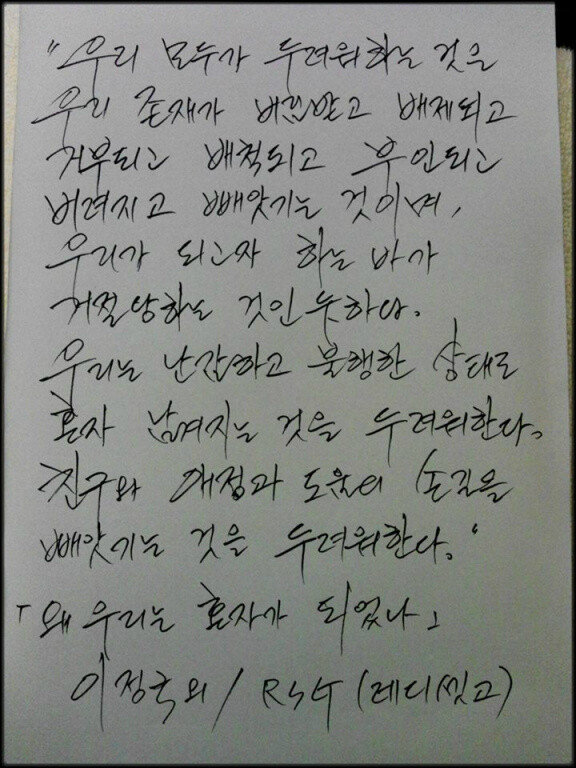 "우리 모두가 두려워하는 것은
우리 존재가 버림받고 배제되고
거부되고 배척되고 부인되고
버려지고 빼앗기는 것이며,
우리가 되고자 하는 바가
거절당하는 것인 듯하다.
우리는 난감하고 불행한 상태로
혼자 남겨지는 것을 두려워한다.
친구와 애정과 도움의 손길을
빼앗기는 것을 두려워한다."
「왜 우리는 혼자가 되었나」
이정국 외 / RSG (레디씻고)